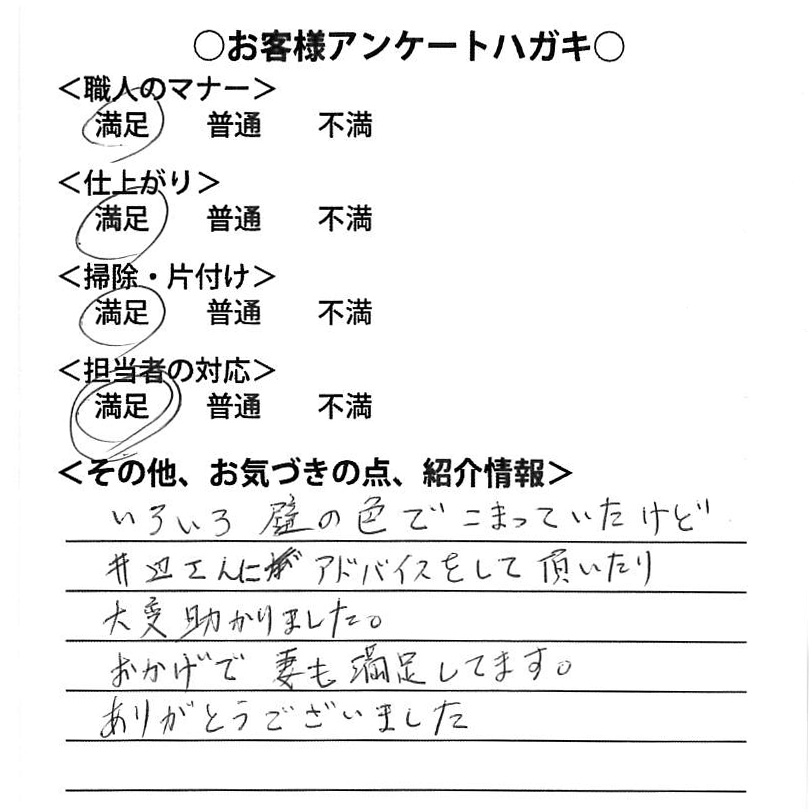 ○お客様アンケートハガキ○
＜職人のマナー＞
満足 普通 不満
＜仕上がり＞
満足 普通 不満
＜掃除・片付け＞
満足 普通 不満
＜担当者の対応＞
満足 普通 不満
＜その他、お気づきの点、紹介情報＞
いろいろ 壁の色で こまっていたけど
井辺さんに アドバイスをして 頂いたり
大変 助かりました。
おかげで 妻も 満足してます。
ありがとうございました